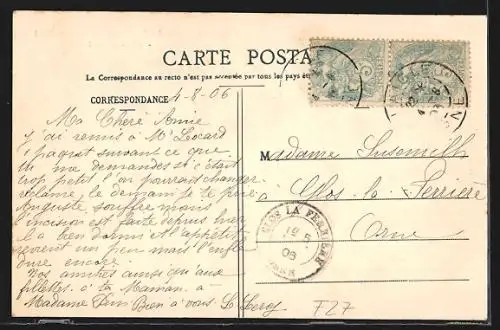 CARTE POSTA
La Correspondance au recto n'est pas acceptée par tous les pays
CORRESPONDANCE 4-8-06
Ma Chère Amie
j'ai remis à Mr Locard
paquet suivant ce que
tu me demandes si c'était
trop petit l'on pourrait changer
je te prie
Auguste souffre moins
l'incision est faite depuis hier
il a bien dormi et l'appétit
revient un peu mais l'enfle
dure encore
Nos amitiés ainsi qu'aux
fillettes à ta Maman à
Madame Bien à vous
M
Madame
à Clos-la-Ferrière
Orne
LA FERRIERE
19
06
ORNE
T27